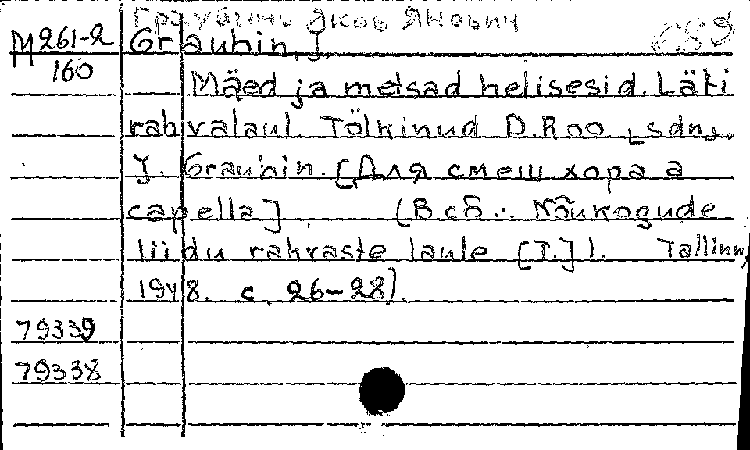 Граубинь Яков Янович
689
M 261-2 Graubin, J.
160 Mäed ja metsad helisesid. Läti
rahvalaul. Tõlkinud D. Roo, sdn.
J. Graubin. [Для смеш хора а
capella] (В сб.: Nõukogude
liidu rahvaste laule [I.]). Tallinn,
1948. с. 26-28).
79339
79338